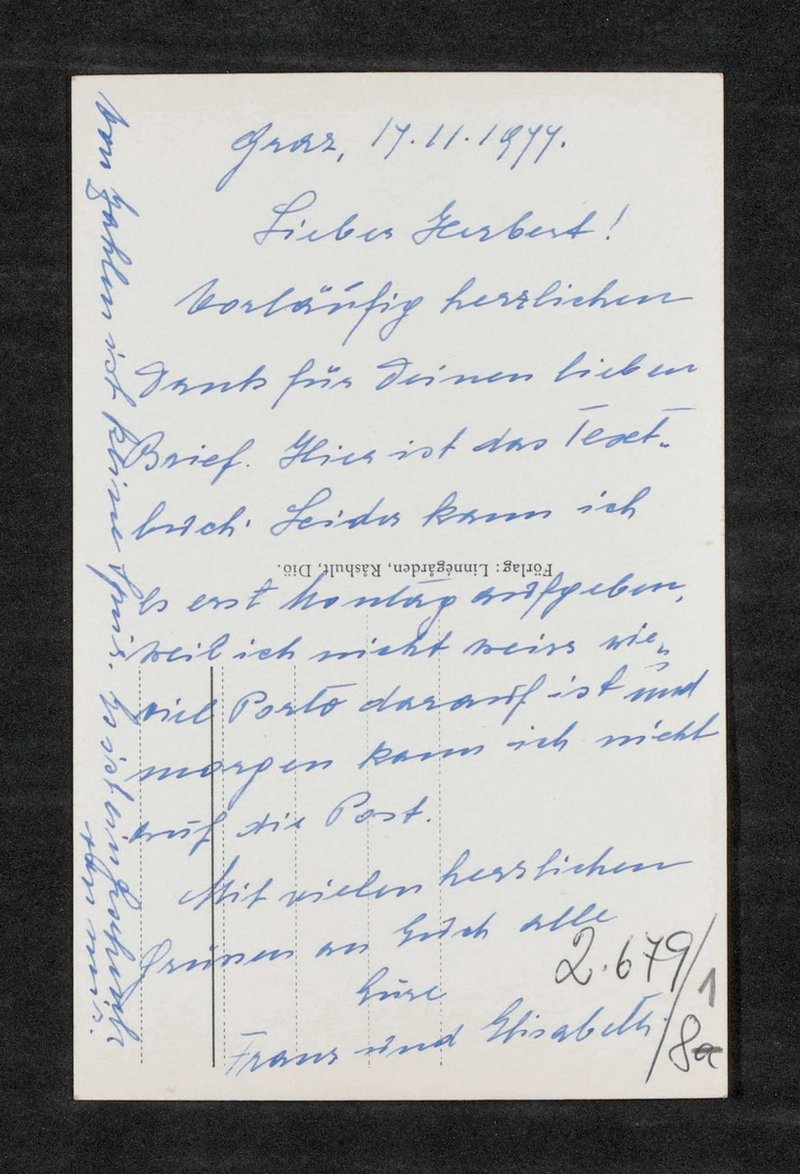 Graz, 17.11.1977.
Lieber Herbert!
Vorläufig herzlichen
Dank für Deinen lieben
Brief. Hier ist das Text-
buch. Leider kann ich
es erst Montag aufgeben,
weil ich nicht weiss wie-
viel Porto darauf ist und
morgen kann ich nicht
auf die Post.
Mit vielen herzlichen
Grüssen an Euch alle
Eure
Franz und Elisabeth
Förlag: Linnégården, Råshult, Diö.
Von Zahlen ist keine Spur. Es ist ein Geschenk
von mir.
2.679/1
8a